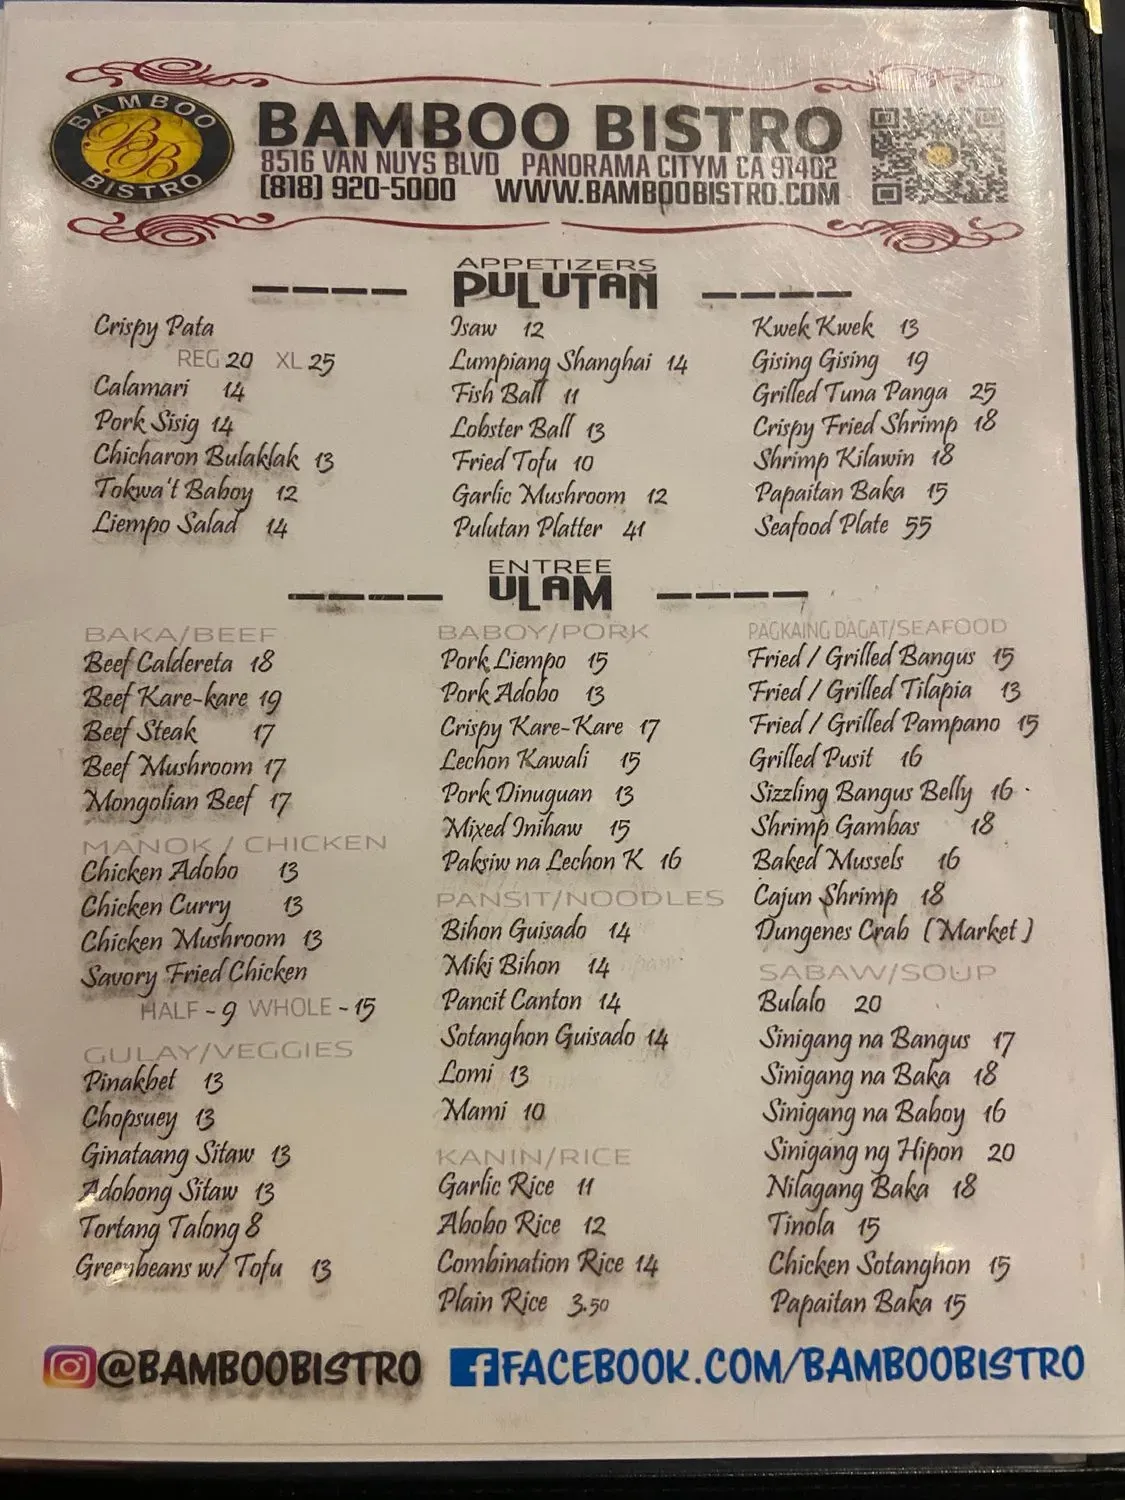 BAMBOO BISTRO
BB
BAMBOO BISTRO
8516 VAN NUYS BLVD PANORAMA CITYM CA 91402
(818) 920-5000 WWW.BAMBOOBISTRO.COM
APPETIZERS
PULUTAN
Crispy Pata
REG 20 XL 25
Calamari 14
Pork Sisig 14
Chicharon Bulaklak 13
Tokwa't Baboy 12
Liempo Salad 14
Isaw 12
Lumpiang Shanghai 14
Fish Ball 11
Lobster Ball 13
Fried Tofu 10
Garlic Mushroom 12
Pulutan Platter 41
Kwek Kwek 13
Gising Gising 19
Grilled Tuna Panga 25
Crispy Fried Shrimp 18
Shrimp Kilawin 18
Papaitan Baka 15
Seafood Plate 55
ENTREE
ULAM
BAKA/BEEF
Beef Caldereta 18
Beef Kare-kare 19
Beef Steak 17
Beef Mushroom 17
Mongolian Beef 17
MANOK / CHICKEN
Chicken Adobo 13
Chicken Curry 13
Chicken Mushroom 13
Savory Fried Chicken
HALF - 9 WHOLE - 15
GULAY/VEGGIES
Pinakbet 13
Chopsuey 13
Ginataang Sitaw 13
Adobong Sitaw 13
Tortang Talong 8
Greenbeans w/ Tofu 13
BABOY/PORK
Pork Liempo 15
Pork Adobo 13
Crispy Kare-Kare 17
Lechon Kawali 15
Pork Dinuguan 13
Mixed Inihaw 15
Paksiw na Lechon K 16
PANSIT/NOODLES
Bihon Guisado 14
Miki Bihon 14
Pancit Canton 14
Sotanghon Guisado 14
Lomi 13
Mami 10
KANIN/RICE
Garlic Rice 11
Abobo Rice 12
Combination Rice 14
Plain Rice 3.50
PAGKAING DAGAT/SEAFOOD
Fried / Grilled Bangus 15
Fried / Grilled Tilapia 13
Fried / Grilled Pampano 15
Grilled Pusit 16
Sizzling Bangus Belly 16
Shrimp Gambas 18
Baked Mussels 16
Cajun Shrimp 18
Dungenes Crab (Market)
SABAW/SOUP
Bulalo 20
Sinigang na Bangus 17
Sinigang na Baka 18
Sinigang na Baboy 16
Sinigang ng Hipon 20
Nilagang Baka 18
Tinola 15
Chicken Sotanghon 15
Papaitan Baka 15
@BAMBOOBISTRO
FACEBOOK.COM/BAMBOOBISTRO